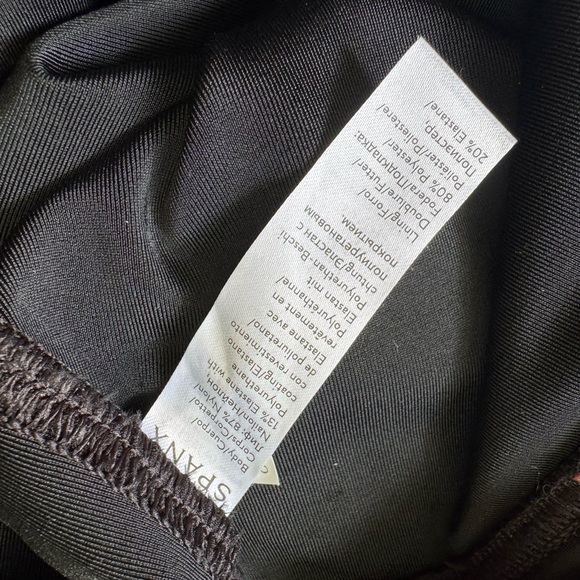 SPANX
Body/Cuerpo/
Corps/Corpetto/
Лиф: 87% Nylon/
Nailon/Нейлон/
13% Elastane with
Polyurethane
coating/Elastano
con revestimiento
de poliuretano/
Elastane avec
revêtement en
Polyurethanne/
Elastan mit
Polyurethan-Beschi
chtung/Эластан с
полиуретановым
покрытием,
Lining/Forro/
Doublure/Futter/
Fodera/Подкладка:
80% Polyester/
Poliester/Poliestere/
Полиэстер,
20% Elastane/